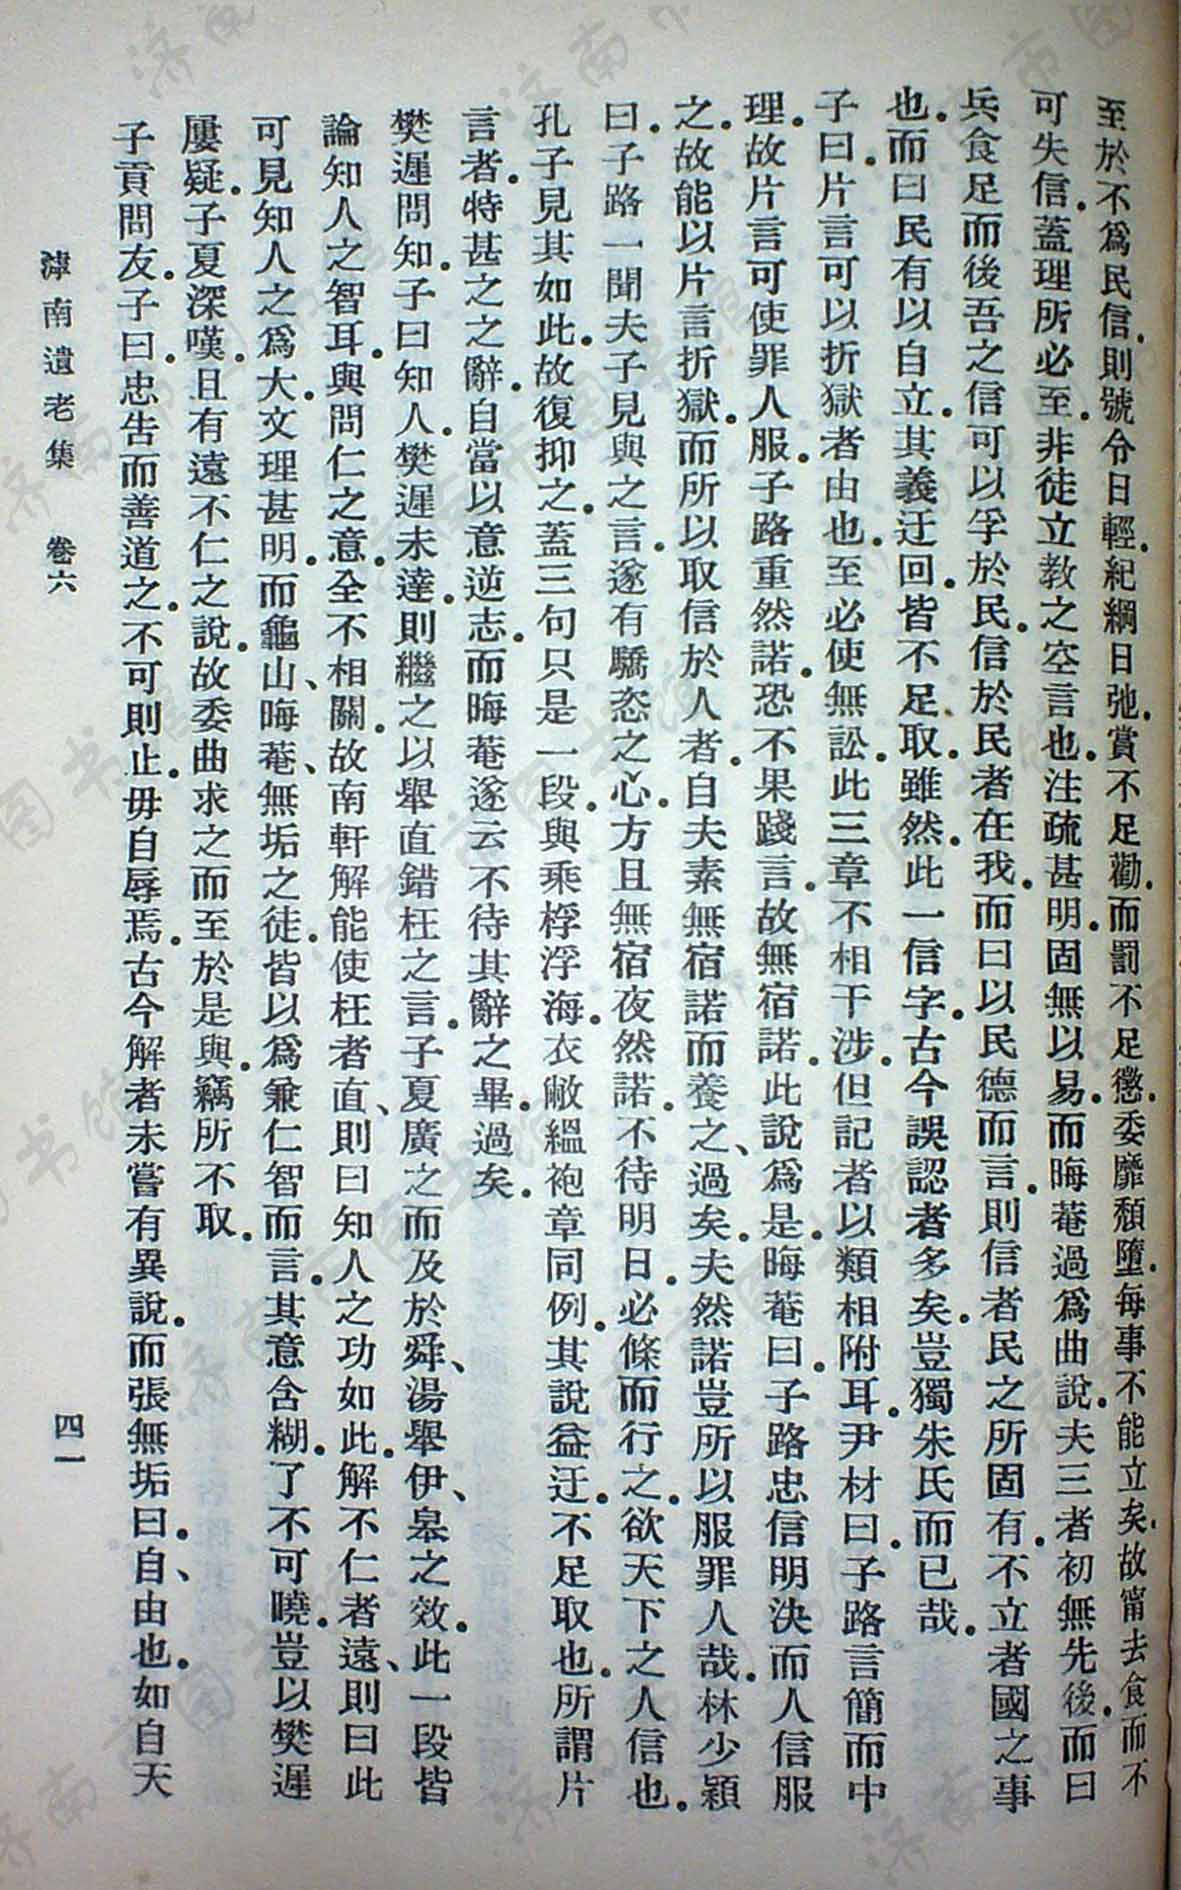 至於不爲民信則號令日輕紀綱日弛賞不足勸而罰不足懲委靡頹墮每事不能立矣故甯去食而不
可失信蓋理所必至非徒立教之空言也注疏甚明固無以易而晦菴過爲曲說夫三者初無先後而曰
兵食足而後吾之信可以孚於民信於民者在我而曰以民德而言則信者民之所固有不立者國之事
也而曰民有以自立其義迂回皆不足取雖然此一信字古今誤認者多矣豈獨朱氏而已哉
子曰片言可以折獄者由也至必使無訟此三章不相干涉但記者以類相附耳尹材曰子路言簡而中
理故片言可使罪人服子路重然諾恐不果踐言故無宿諾此說爲是晦菴曰子路忠信明決而人信服
之故能以片言折獄而所以取信於人者自夫素無宿諾而養之過矣夫然諾豈所以服罪人哉林少穎
曰子路一聞夫子見與之言遂有驕恣之心方且無宿夜然諾不待明日必條而行之欲天下之人信也
孔子見其如此故復抑之蓋三句只是一段與乘桴浮海衣敝縕袍章同例其說益迂不足取也所謂片
言者特甚之之辭自當以意逆志而晦菴遂云不待其辭之畢過矣
樊遲問知子曰知人樊遲未達則繼之以舉直錯枉之言子夏廣之而及於舜湯舉伊皋之效此一段皆
論知人之智耳與問仁之意全不相關故南軒解能使枉者直則曰知人之功如此解不仁者遠則曰此
可見知人之爲大文理甚明而龜山晦菴無垢之徒皆以爲兼仁智而言其意含糊了不可曉豈以樊遲
屢疑子夏深嘆且有遠不仁之說故委曲求之而至於是與竊所不取
子貢問友子曰忠告而善道之不可則止毋自辱焉古今解者未嘗有異說而張無垢曰自由也如自天
滹南遺老集 卷六 四一